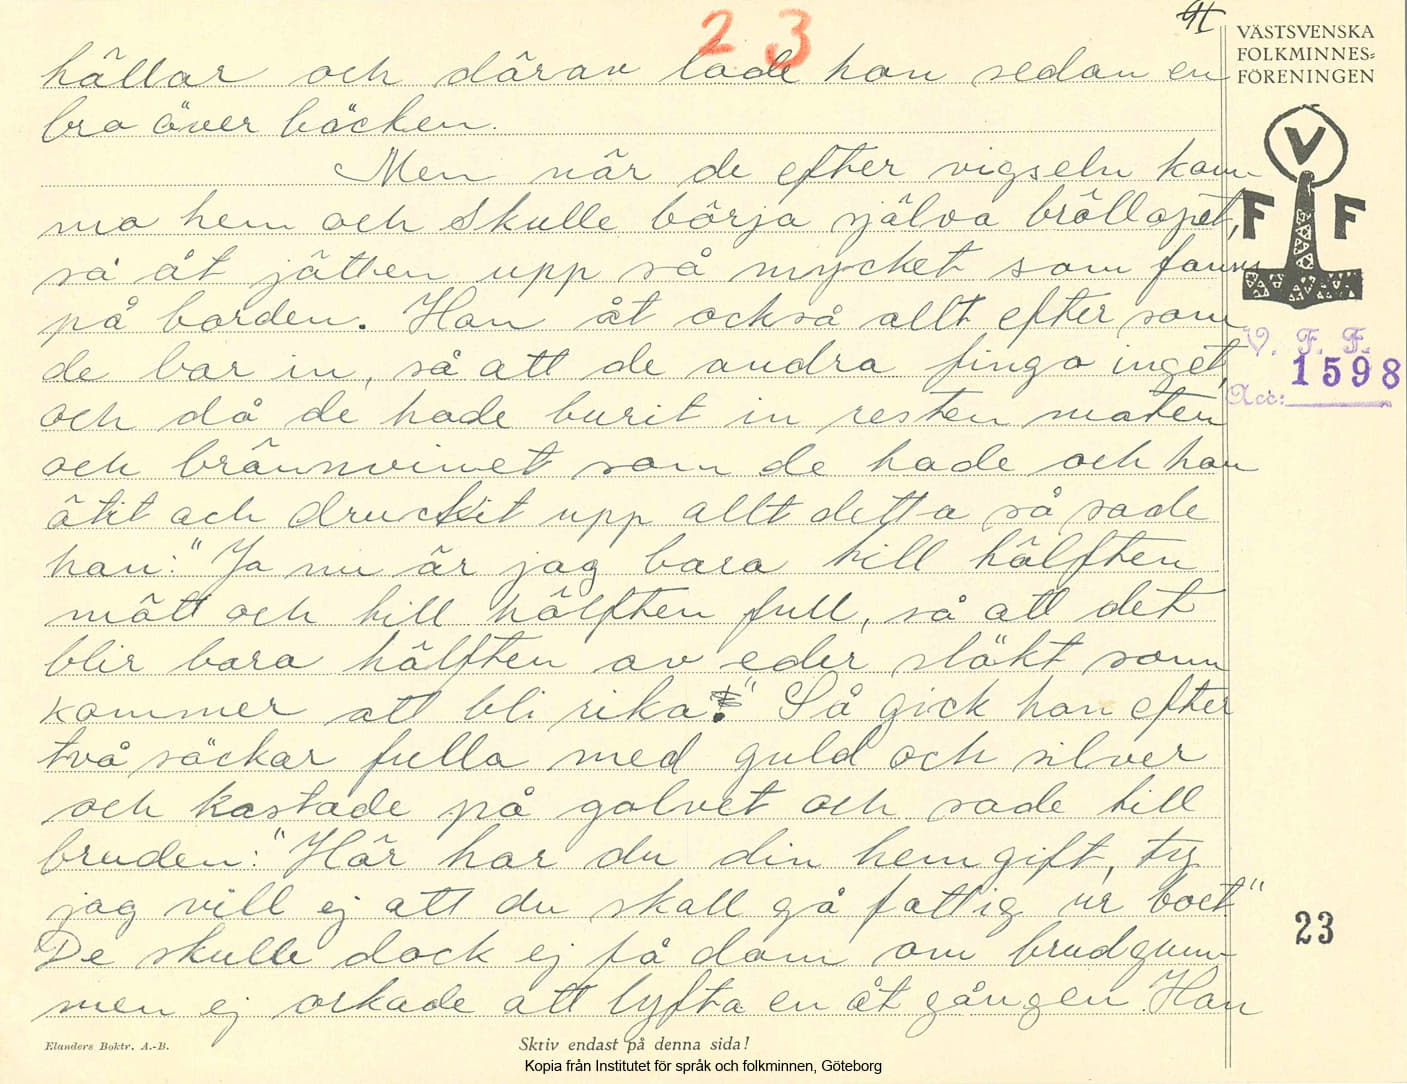 23
VÄSTSVENSKA
FOLKMINNES=
FÖRENINGEN
V
F F
V. F. F.
1598
Acc:
hällar och därav lade han sedan en
bro över bäcken.
Men när de efter vigseln kom
mo hem och skulle börja själva bröllopet,
så åt jätten upp så mycket som fanns
på borden. Han åt också allt efter som
de bar in, så att de andra fingo inget,
och då de hade burit in resten maten
och brännvinet som de hade och han
ätit och druckit upp allt detta så sade
han: "Ja nu är jag bara till hälften
mätt och till hälften full, så att det
blir bara hälften av eder släkt som
kommer att bli rika." Så gick han efter
två säckar fulla med guld och silver
och kastade på golvet och sade till
bruden: "Här har du din hemgift, ty
jag vill ej att du skall gå fattig ur boet"
De skulle dock ej få dom om brudgum
men ej orkade att lyfta en åt gången. Han
23
Elanders Boktr. A.-B.
Skriv endast på denna sida!
Kopia från Institutet för språk och folkminnen, Göteborg